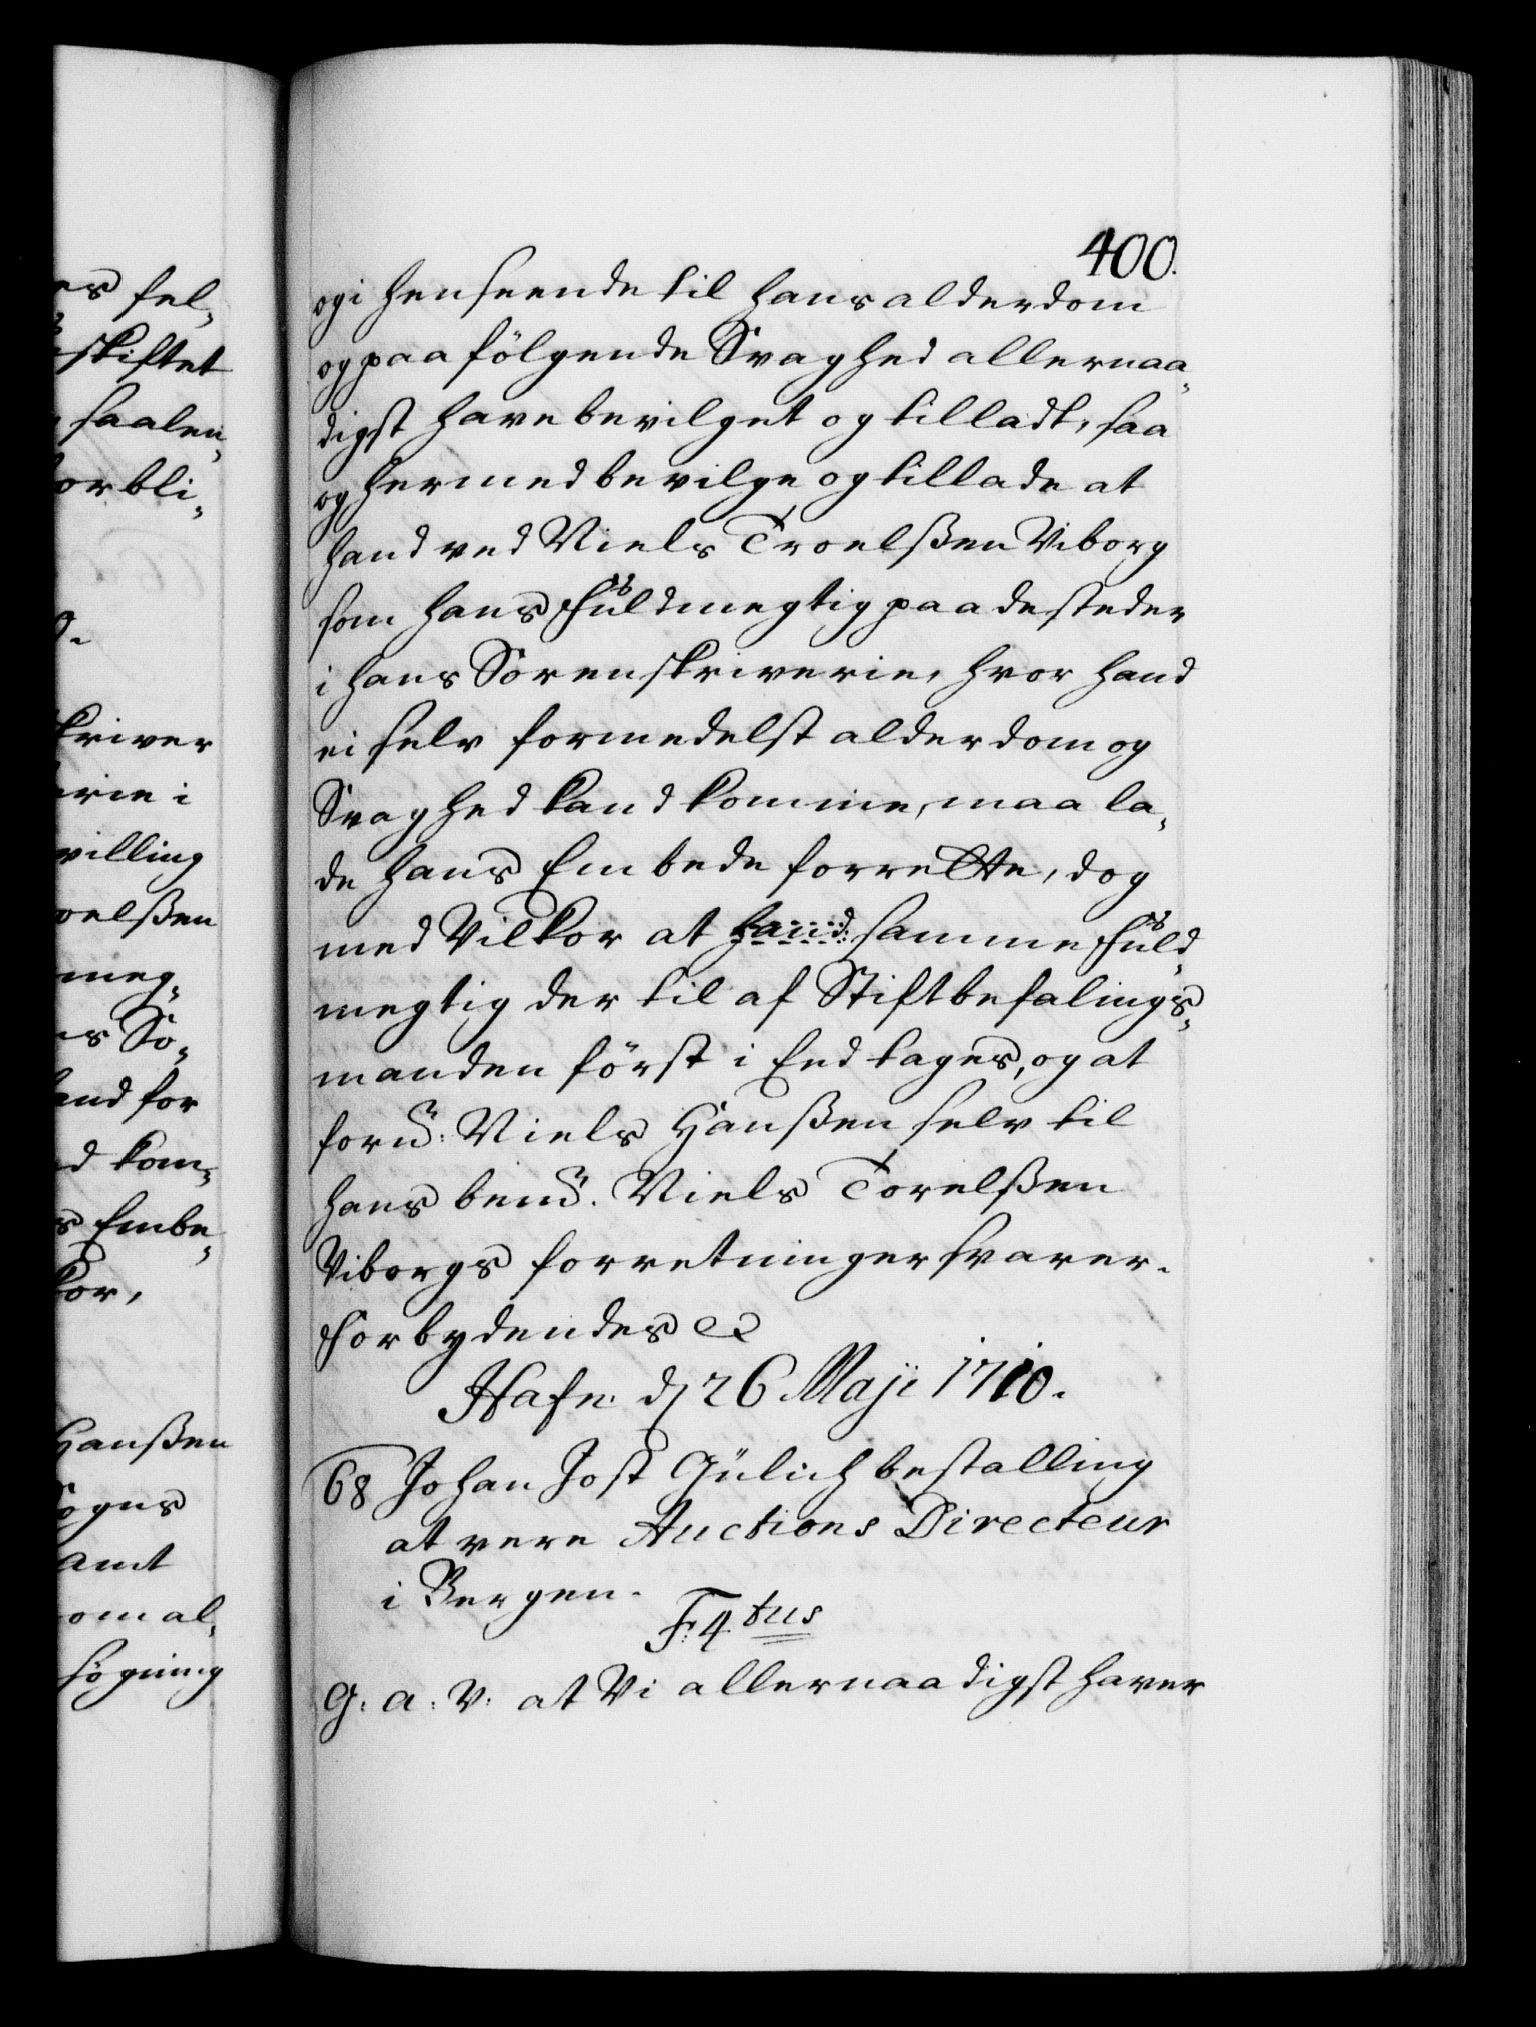 es sel-
skiftet
saalen-
or bli-
0.
kriver
rie i
villing
oelßen
meg-
s So-
and for
d kom-
s Embe-
kor,
Hanßen
ogns
amt
om al-
søgning
400.
og i henseende til hans alderdom
og paafölgende Svaghed allernaa-
digst have bevilget og tilladt, saa
og hermed bevilge og tillade at
hand ved Niels Troelßen Viborg
som hans Fuldmegtig paa de steder
i hans Sorenskriverie, hvor hand
ei selv formedelst alderdom og
Svaghed kand komme, maa la-
de hans Embede forrette, dog
med Vilkor at hand samme Fuld-
megtig der til af Stiftbefalings-
manden först i Eed tages, og at
forn: Niels Hanßen selv til
hans ben. Niels Torelßen
Viborgs forretninger svarer.
Forbydendes &
Hafn: d 26 Maji 1710.
68 Johan Jost Gülich bestalling
at vere Auctions Directeur
i Bergen.
F: 4tus
G: A: V: at Vi allernaadigst haver